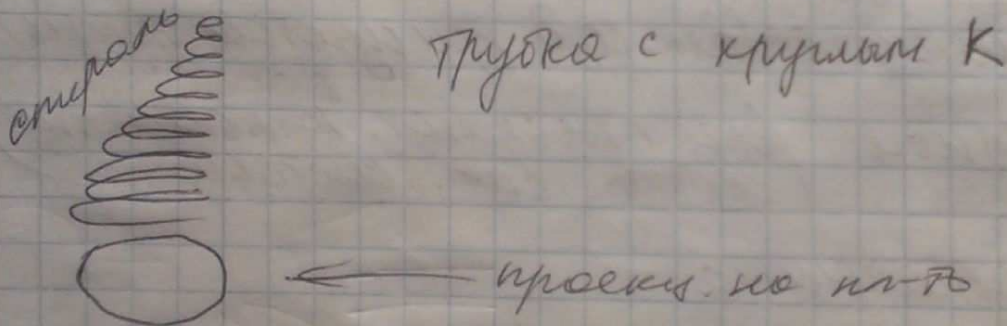 спираль
Трубка с круглым К
проекц. на пл-ть